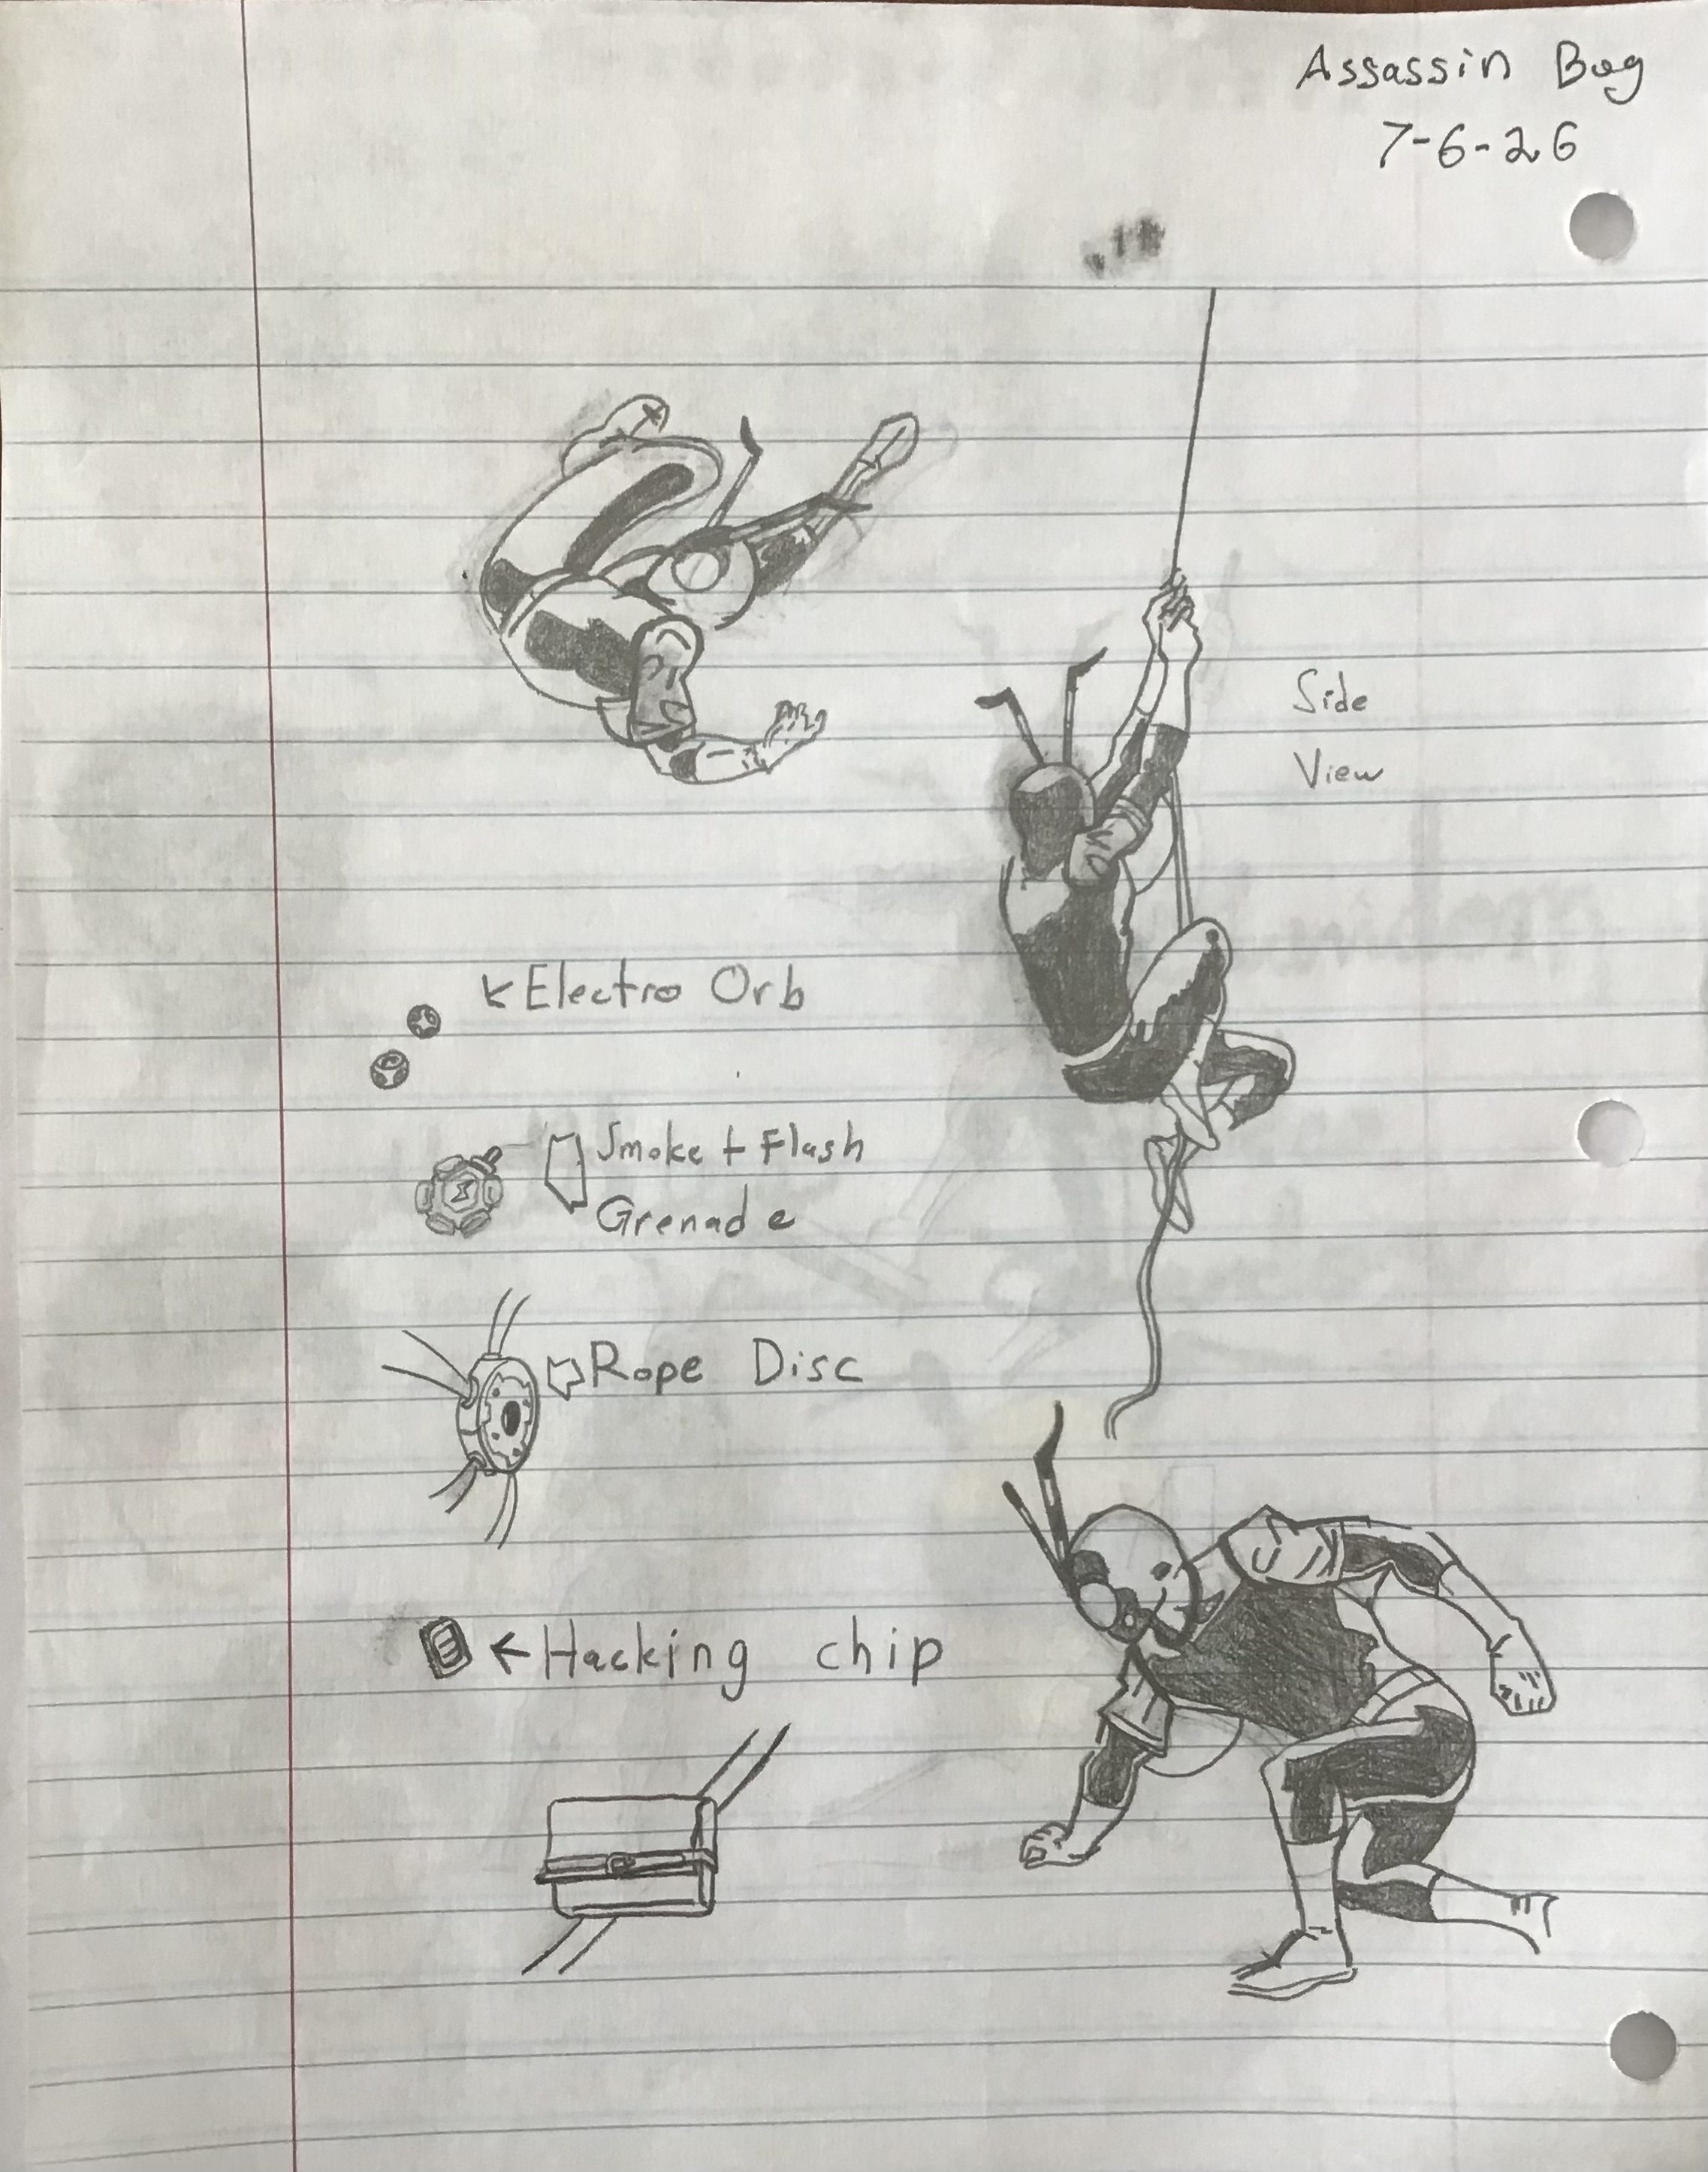 Assassin Bug
7-6-26
Side
View
Electro Orb
Smoke + Flash
Grenade
Rope Disc
Hacking chip